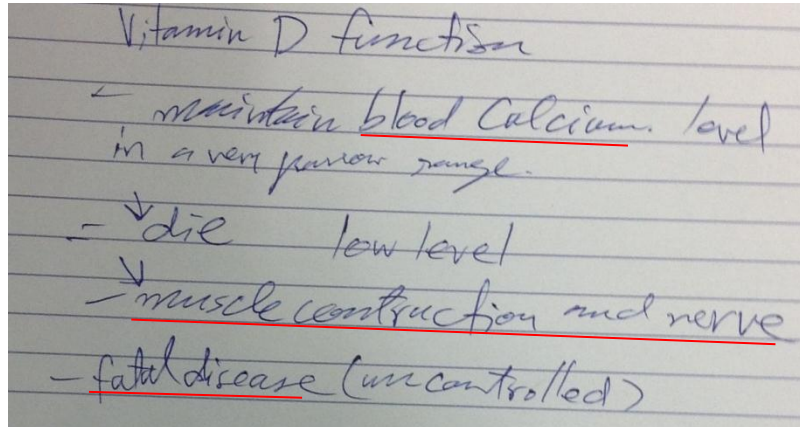 Vitamin D function
- maintain blood Calcium. level
in a very narrow range.
- ↓ die low level
- ↓ muscle contruction and nerve
- fatal disease (uncontrolled)